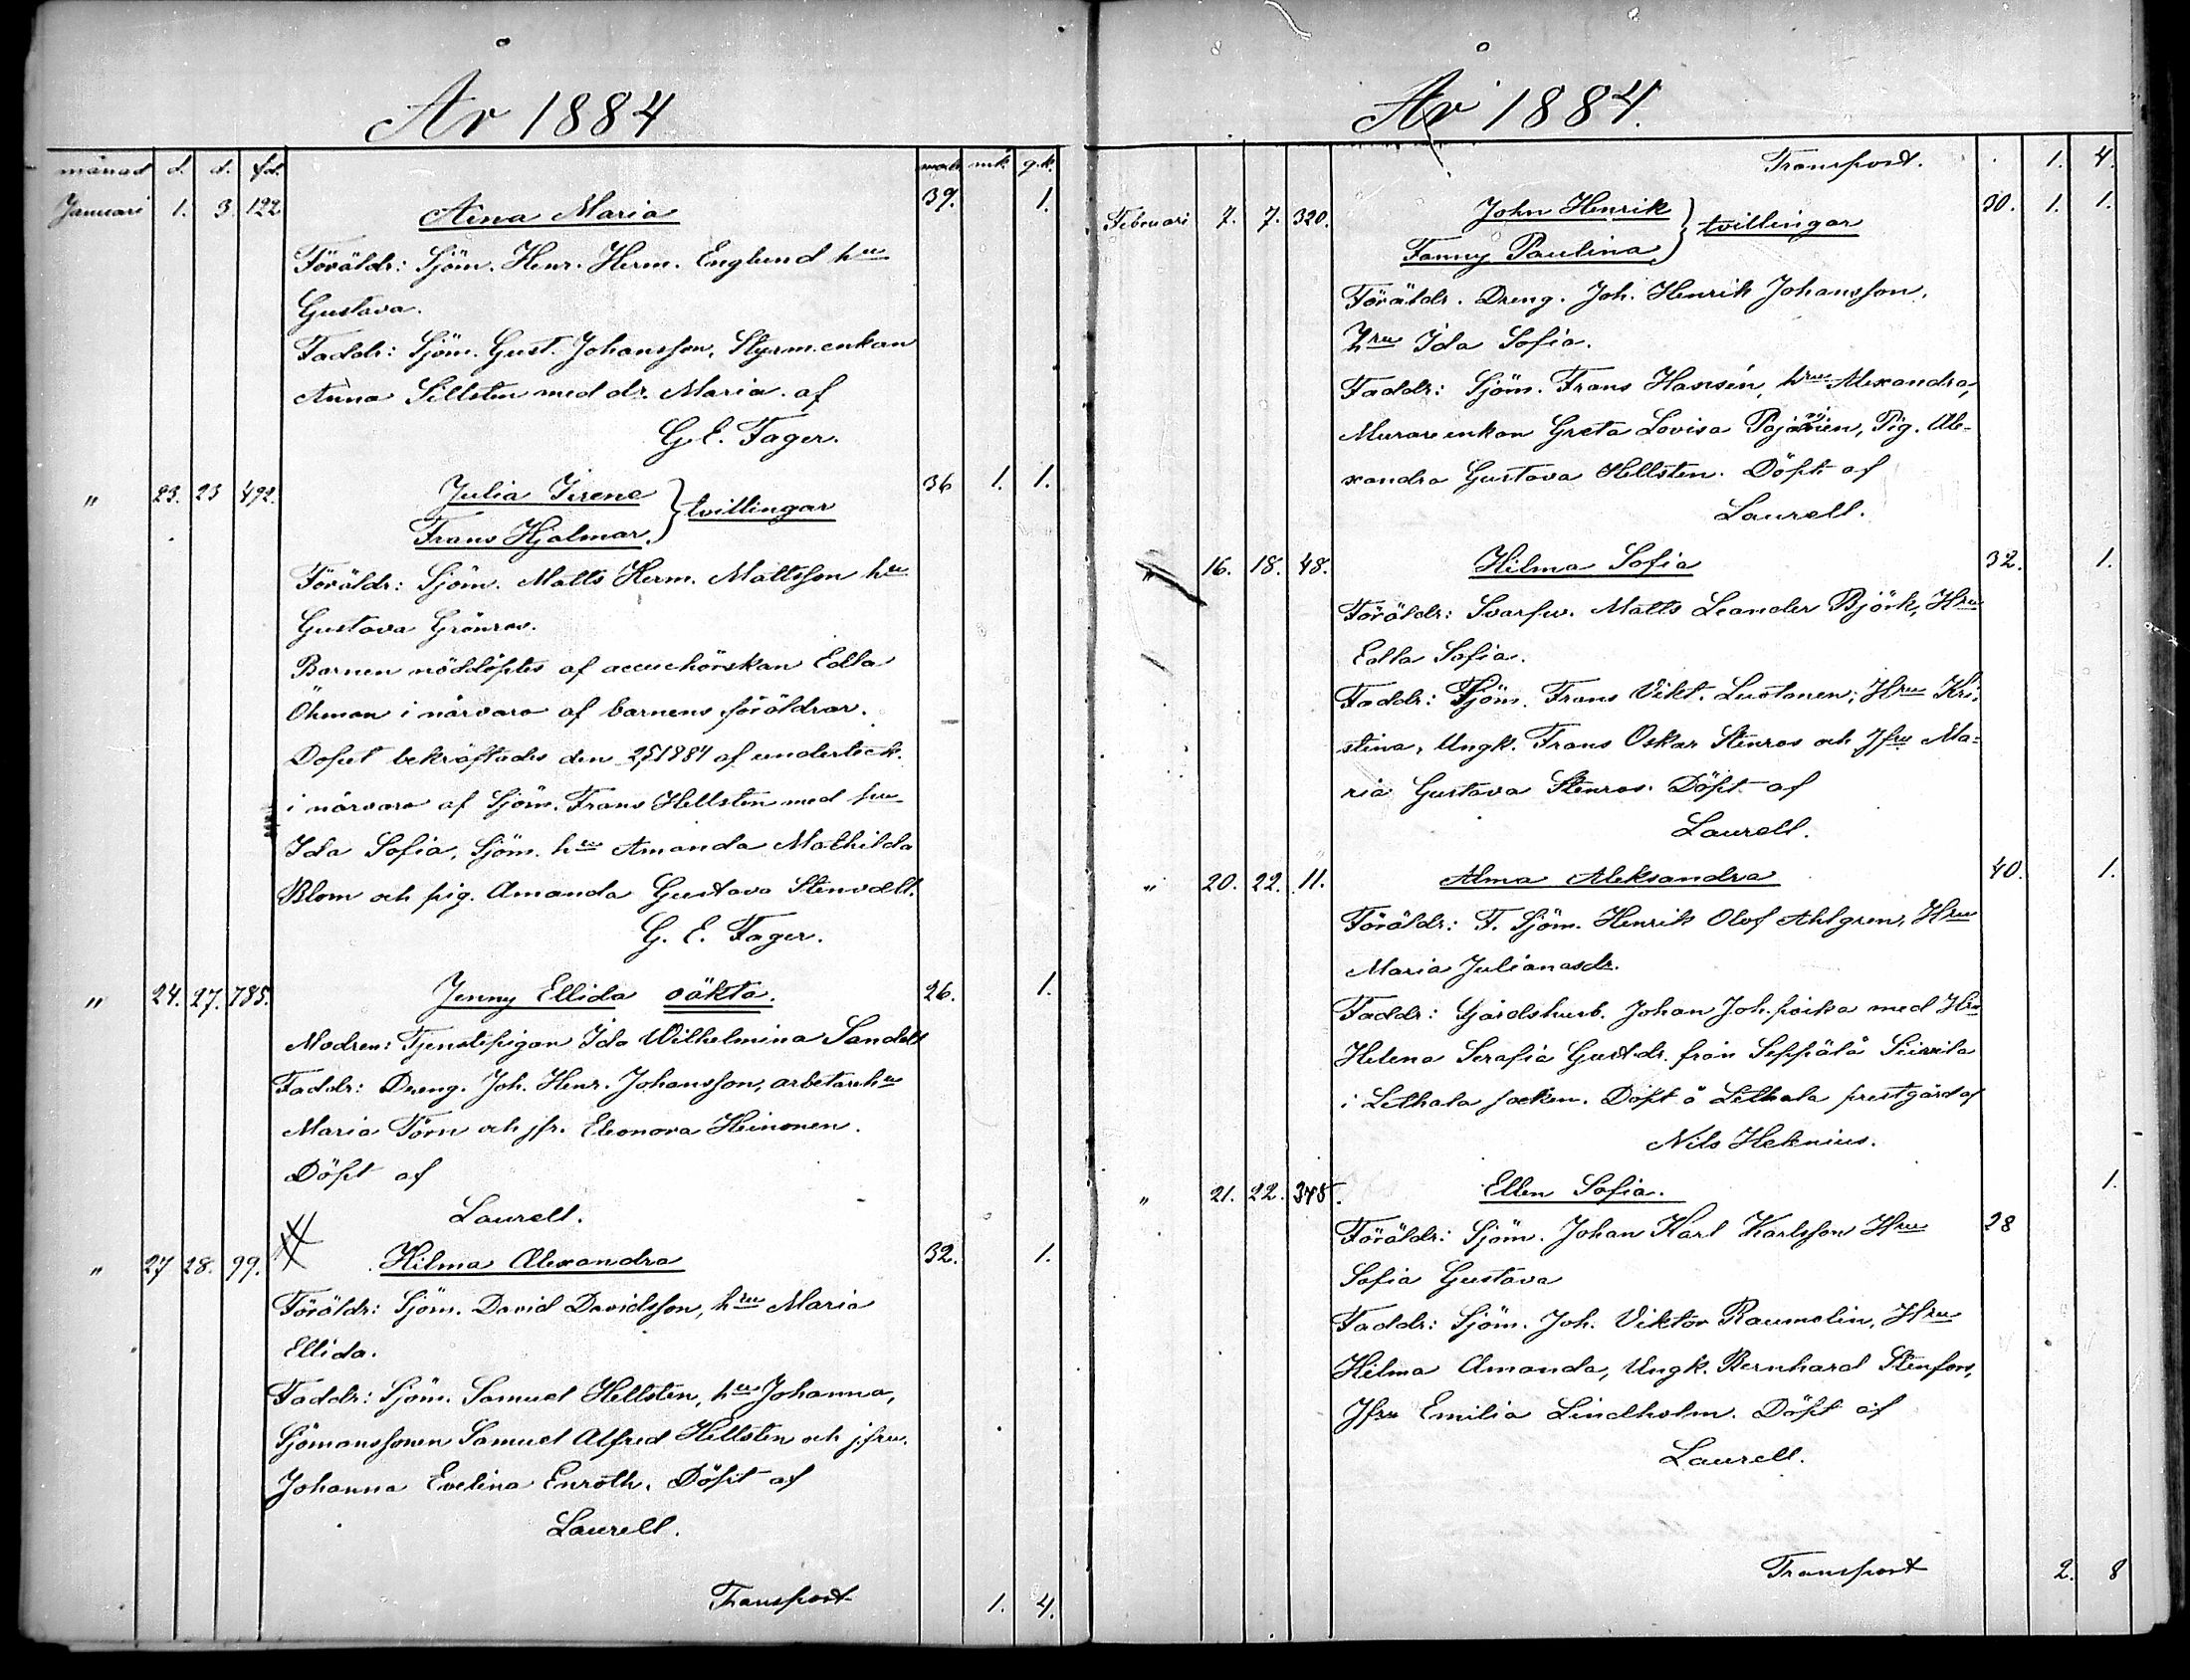 År 1884
månad d. d. fol. mod. mk. q.k.
Januari 1. 3. 122 Aina Maria 39. 1.
Föräldr: Sjöm. Henr. Herm. Englund hu
Gustava.
Faddr: Sjöm. Gust. Johansson, Styrm.enkan
Anna Sillsten med dr. Maria. af
G. E. Fager.
" 23. 23 492. Julia Irene } tvillingar 36 1. 1.
Frans Hjalmar.
Föräldr: Sjöm. Matts Herm. Mattsson hu
Gustava Grönros.
Barnen nöddöptes af accuchörskan Edla
Öhman i närvaro af barnens föräldrar.
Dopet bekräftades den 25/1 1884 af underteck.
i närvaro af Sjöm. Frans Hellsten med hu
Ida Sofia, Sjöm. hu Amanda Mathilda
Blom och pig. Amanda Gustava Stenvall.
G. E. Fager.
" 24. 27. 785. Jenny Ellida oäkta. 26. 1.
Modren: Tjenstepigan Ida Wilhelmina Sandell
Faddr: Dreng. Joh. Henr. Johansson, arbetareh:u
Maria Törn och jfr. Eleonora Heinonen.
Döpt af
Laurell.
" 27 28. 99. Hilma Alexandra 32. 1.
Föräldr: Sjöm. David Davidsson, hru Maria
Ellida.
Faddr: Sjöm. Samuel Hellsten, hu Johanna,
Sjömanssonen Samuel Alfred Hellsten och jfru.
Johanna Evelina Enroth. Döpt af
Laurell.
Transport 1. 4.
År 1884.
Transport. 1. 4.
Februari 7. 7. 320. John Henrik } tvillingar 30. 1. 1.
Fanny Paulina
Föräldr. Dreng. Joh. Henrik Johansson,
Hru Ida Sofia.
Faddr: Sjöm. Frans Hansén, hru Alexandra,
Murareenkan Greta Lovisa Pajanen, Pig. Ale-
xandra Gustava Hellsten. Döpt af
Laurell.
" 16. 18. 48. Hilma Sofia 32. 1.
Föräldr: Svarfv. Matts Leander Björk, Hru
Edla Sofia.
Faddr: Sjöm. Frans Vikt. Luotonen, Hru Kri-
stina, Ungk. Frans Oskar Stenros och Jfru Ma-
ria Gustava Stenros. Döpt af
Laurell.
" 20. 22. 11. Alma Aleksandra 40. 1.
Föräldr: F. Sjöm. Henrik Olof Ahlgren, Hru
Maria Julianasdr.
Faddr: Gårdshusb. Johan Joh.poika med Hru
Helena Serafia Gust.dr. från Seppälä
i Lethala socken. Döpt å Lethala prestgård af
Nils Helenius.
" 21. 22. 345. Ellen Sofia. 1.
Föräldr: Sjöm. Johan Karl Karlsson Hru 28
Sofia Gustava
Faddr: Sjöm. Joh. Viktor Raumolin, Hru
Hilma Amanda, Ungk. Bernhard Stenfors,
Jfru Emilia Lindholm. Döpt af
Laurell.
Transport 2. 8